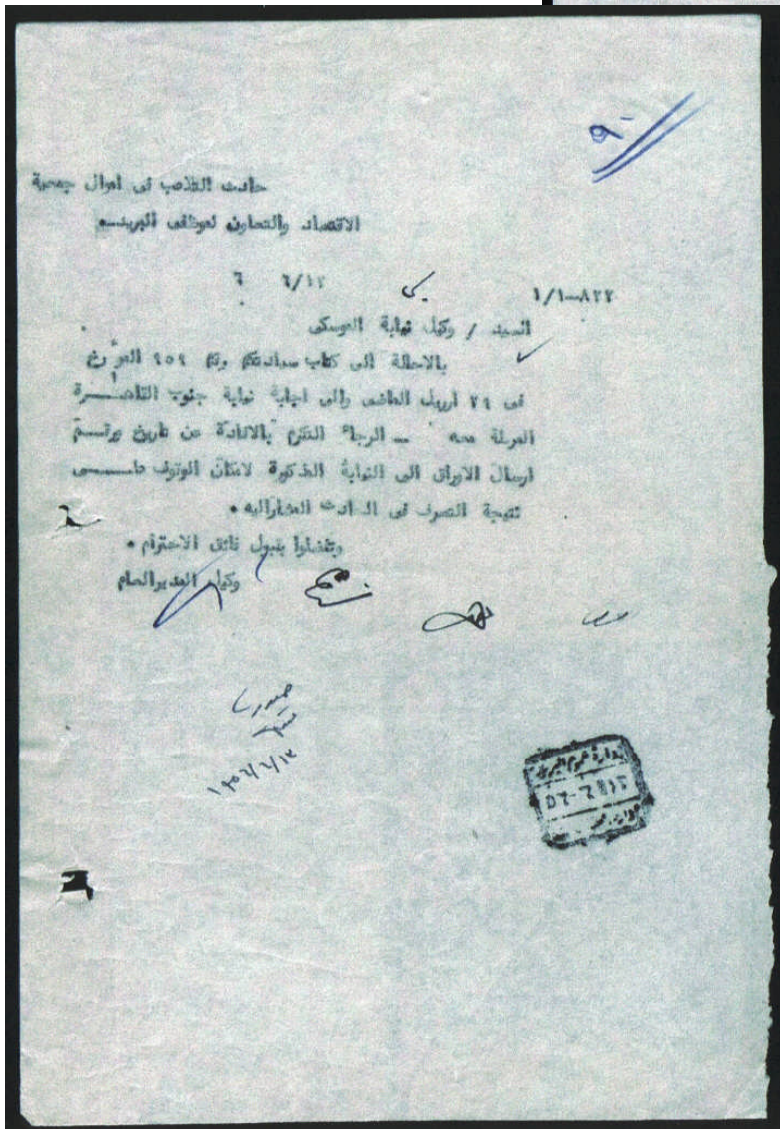 ٩٠
حادث التلاعب فى اموال جمعية
الاقتصاد والتعاون لموظفى البريد
٨٢٢-١/١ ٦/١٢ ٦
السيد / وكيل نيابة الموسكى
بالاحالة الى كتاب سيادتكم رقم ٢٥٩ المؤرخ
فى ٢٩ ابريل الماضى والى اجابة نيابة جنوب القاهرة
المرسلة معه ــ الرجاء التكرم بالافادة عن تاريخ ورقم
ارسال الاوراق الى النيابة المذكورة لامكان الوقوف على
نتيجة التصرف فى الحادث المشاراليه ٠
وتفضلوا بقبول فائق الاحترام ٠
وكيل المديرالعام
١٩٥٦/٦/١٢
ادارة عموم البريد